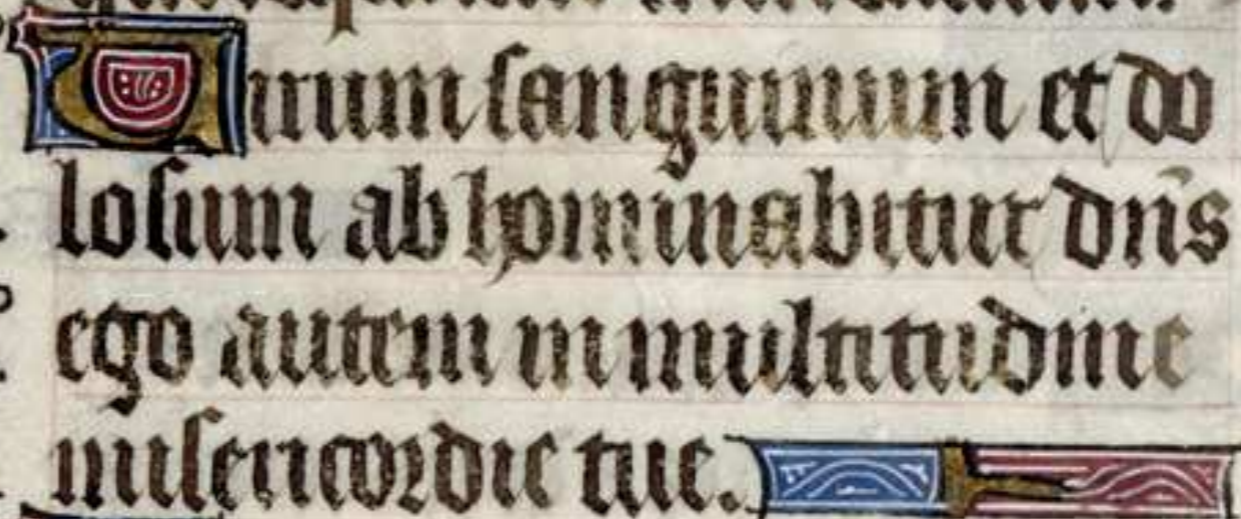 Uirum sanguinum et do
losum abhominabitur dn̄s
ego autem in multitudine
misericordie tue.